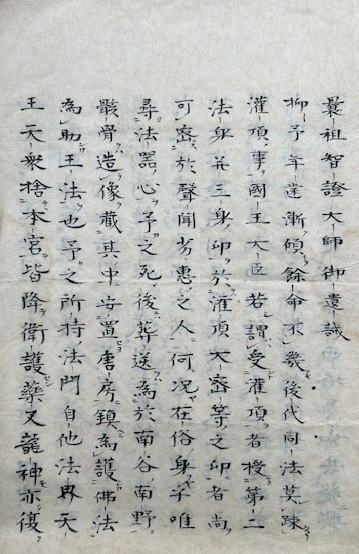 曩祖智證大師御遺誡
抑予年達漸傾餘命不幾後代同法莫疎
灌頂事國王大臣若謂受灌頂者授第二
法身并三身印於灌頂大密等之印者尚
可密於聲聞劣惠之人何況在俗身乎唯
尋法器心予之死後葬送為於南谷南野
骸骨造像蔵其中安置唐房鎮為護佛法
為助王法也予之所持法門自他法界天
王天衆捨本宮皆降衛護藥叉龍神亦復